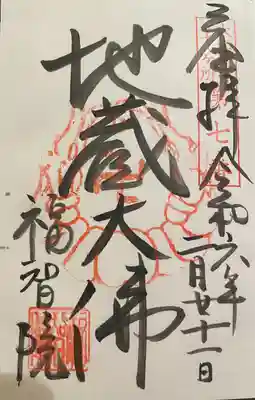 奉拝 令和六年
二月廿一日
地蔵大佛
福智院